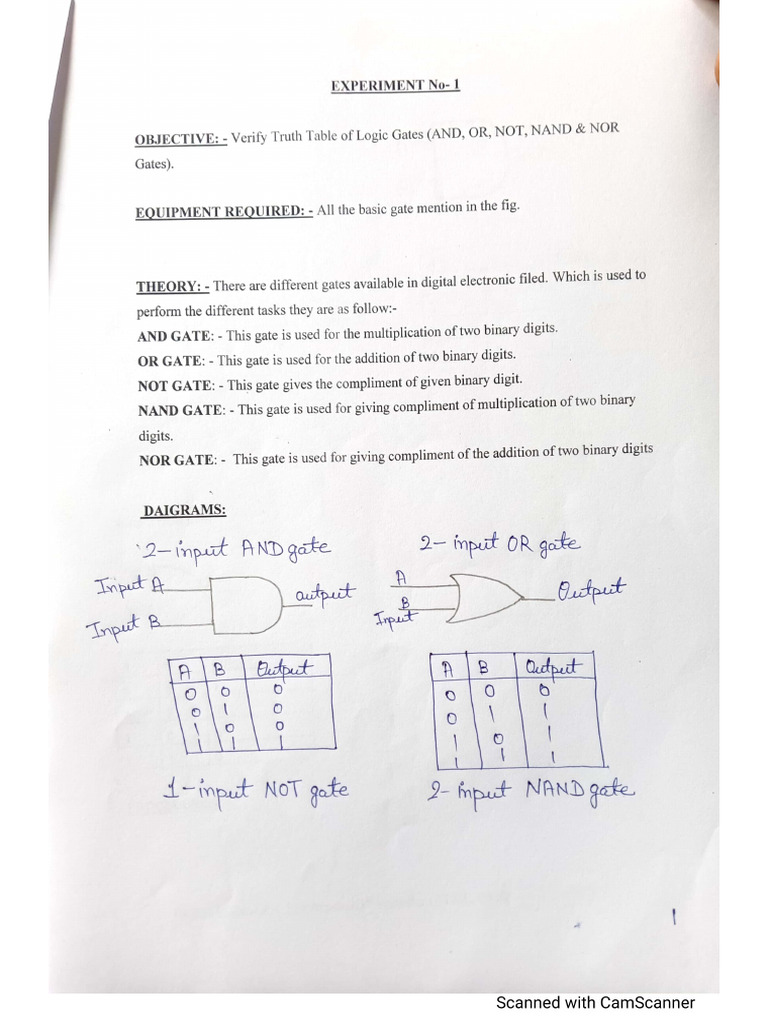 EXPERIMENT No- 1
OBJECTIVE: - Verify Truth Table of Logic Gates (AND, OR, NOT, NAND & NOR
Gates).
EQUIPMENT REQUIRED: - All the basic gate mention in the fig.
THEORY: - There are different gates available in digital electronic filed. Which is used to
perform the different tasks they are as follow:-
AND GATE: - This gate is used for the multiplication of two binary digits.
OR GATE: - This gate is used for the addition of two binary digits.
NOT GATE: - This gate gives the compliment of given binary digit.
NAND GATE: - This gate is used for giving compliment of multiplication of two binary
digits.
NOR GATE: - This gate is used for giving compliment of the addition of two binary digits
DAIGRAMS:
2-input AND gate
Input A
output
Input B
A B Output
0 0 0
0 1 0
1 0 0
1 1 1
2-input OR gate
A
Output
B
Input
A B Output
0 0 0
0 1 1
1 0 1
1 1 1
1-input NOT gate
2-input NAND gate
1
Scanned with CamScanner